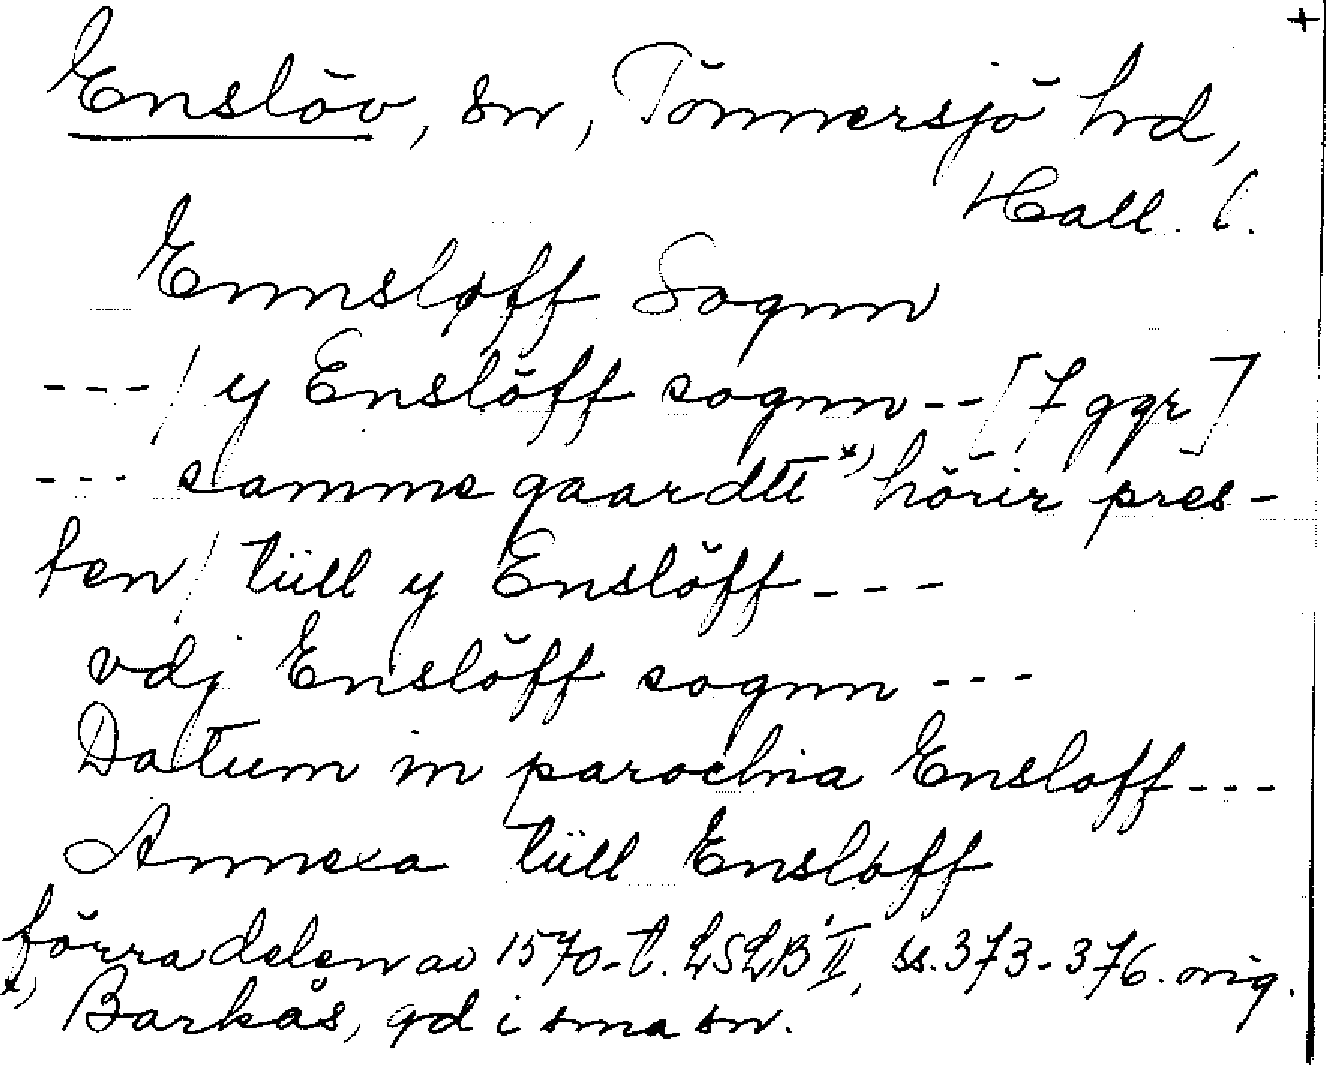 +
Enslöv, sn, Tönnersjö hd,
Hall. l.
Ennsløff Sognn
---/ y Enslöff sognn --[7 ggr]
--- samme gaardtt x) hörir pres-
ten/ tiill y Enslöff ---
vdj Enslöff sognn ---
Datum in parochia Ensloff ---
Annexa tiill Ensløff
förra delen av 1570-t. LSLB II, ss. 373-376. orig.
x) Barkås, gd i sma sn.